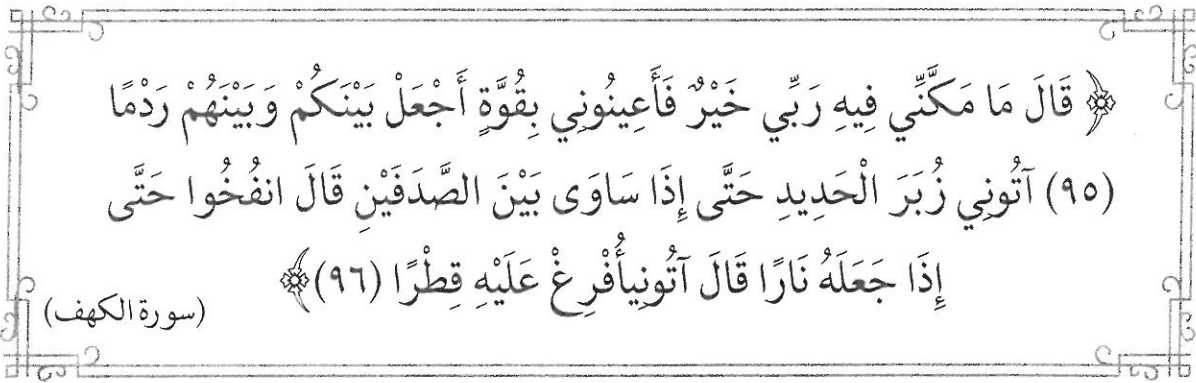 ﴿ قَالَ مَا مَكَّنِّي فِيهِ رَبِّي خَيْرٌ فَأَعِينُونِي بِقُوَّةٍ أَجْعَلْ بَيْنَكُمْ وَبَيْنَهُمْ رَدْمًا
(٩٥) آتُونِي زُبَرَ الْحَدِيدِ حَتَّى إِذَا سَاوَى بَيْنَ الصَّدَفَيْنِ قَالَ انفُخُوا حَتَّى
إِذَا جَعَلَهُ نَارًا قَالَ آتُونِيأُفْرِغْ عَلَيْهِ قِطْرًا (٩٦)﴾
(سورة الكهف)